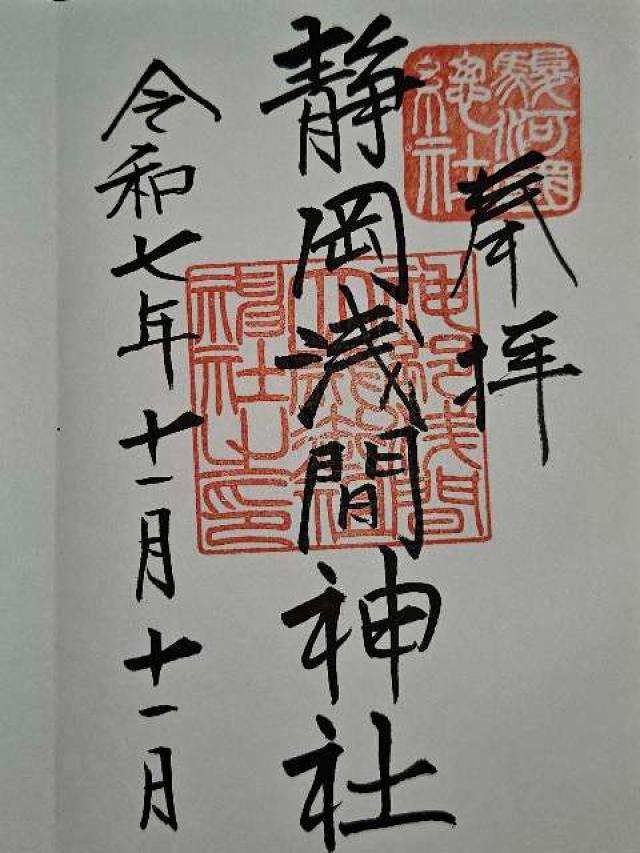 奉拝
駿河國
總社
静岡浅間神社
神部浅間
神社之印
令和七年十一月十一月